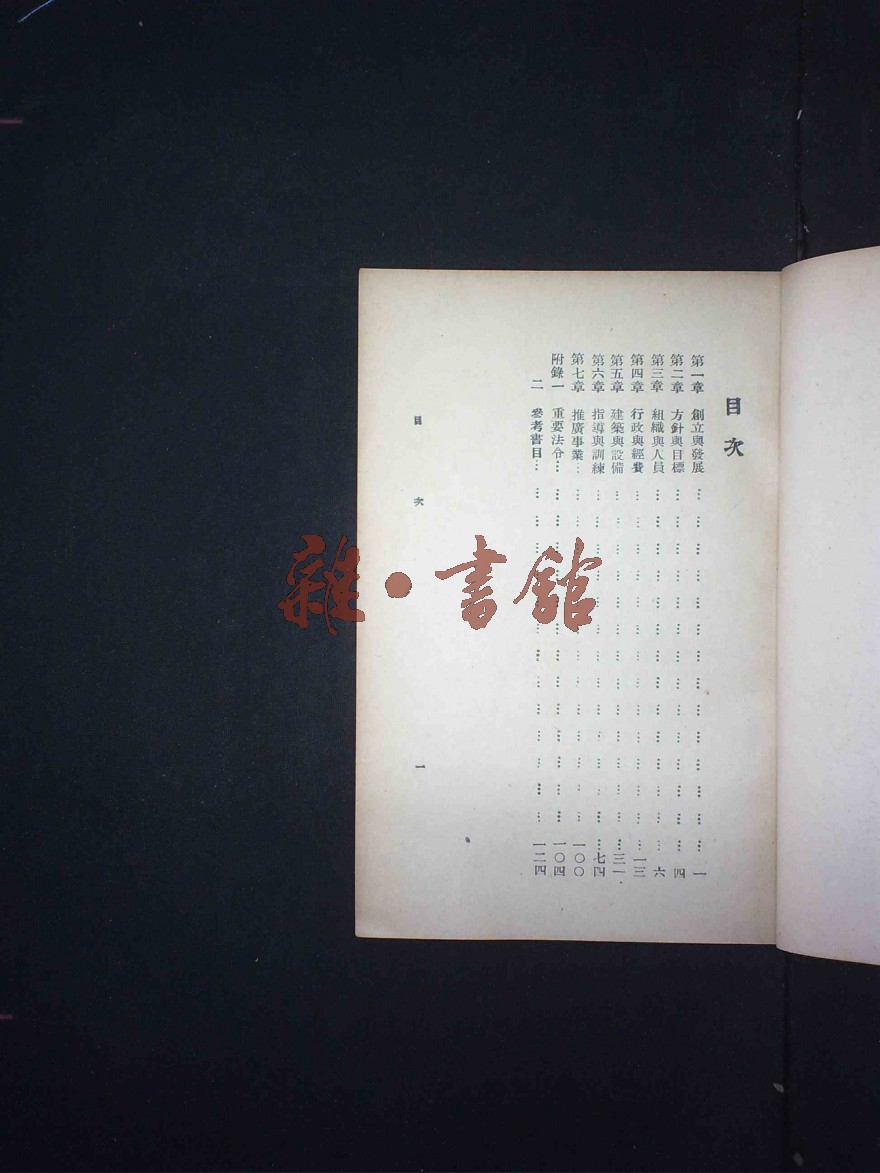 目次
第一章 創立與發展……一
第二章 方針與目標……四
第三章 組織與人員……六
第四章 行政與經費……一三
第五章 建築與設備……三一
第六章 指導與訓練……七四
第七章 推廣事業……一〇〇
附錄一 重要法令……一〇四
二 參考書目……一二四
目次 一
雜·書館